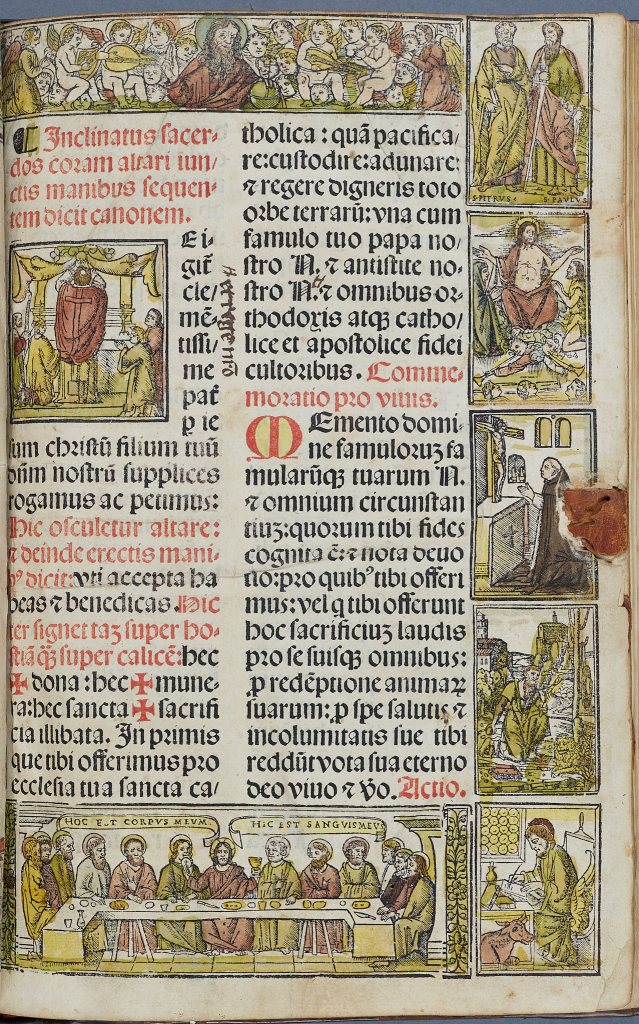 Inclinatus sacer-
dos coram altari iun/
ctis manibus sequen-
tem dicit canonem.
E i-
git̃
cle/
mẽ
tissi/
me
pat̃
ꝑ ie
sum christũ filium tuũ
dñm nostrũ supplices
rogamus ac petimus:
Hic osculetur altare:
⁊ deinde erectis mani-
bꝰ dicit: vti accepta ha
beas ⁊ benedicas. Hic
ter signet taʒ super ho-
stiã qʒ̃ super calicẽ: hec
✠ dona: hec ✠ mune-
ra: hec sancta ✠ sacrifi
cia illibata. In primis
que tibi offerimus pro
ecclesia tua sancta ca/
tholica: quã pacifica/
re: custodire: adunare:
⁊ regere digneris toto
orbe terrarũ: vna cum
famulo tuo papa no/
stro N. ⁊ antistite no-
stro N. ⁊ omnibus or-
thodoxis atqʒ catho/
lice et apostolice fidei
cultoribus. Comme-
moratio pro viuis.
MEmento domi-
ne famuloruʒ fa
mularũqʒ tuarum N.
⁊ omnium circunstan
tiuʒ: quorum tibi fides
cognita ẽ: ⁊ nota deuo
tio: pro quibꝰ tibi offeri
mus: vel q̃ tibi offerunt
hoc sacrificiuʒ laudis
pro se suisqʒ omnibus:
ꝓ redẽptione animaꝝ
suarum: ꝓ spe salutis ⁊
incolumitatis sue tibi
reddũt vota sua eterno
deo viuo ⁊ ṽo. Actio.
S·PETRVS· S·PAVLVS
HOC EST CORPVS MEVM
HIC EST SANGVIS MEVS